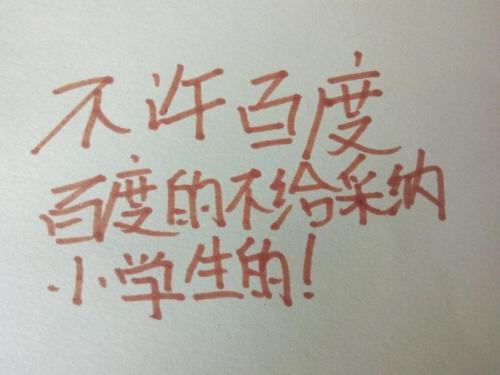 不许百度
百度的不给采纳
小学生的!